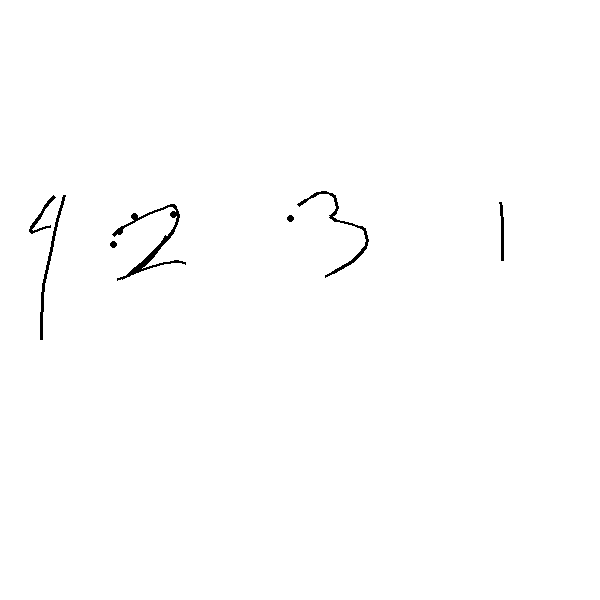 4 2 3 1